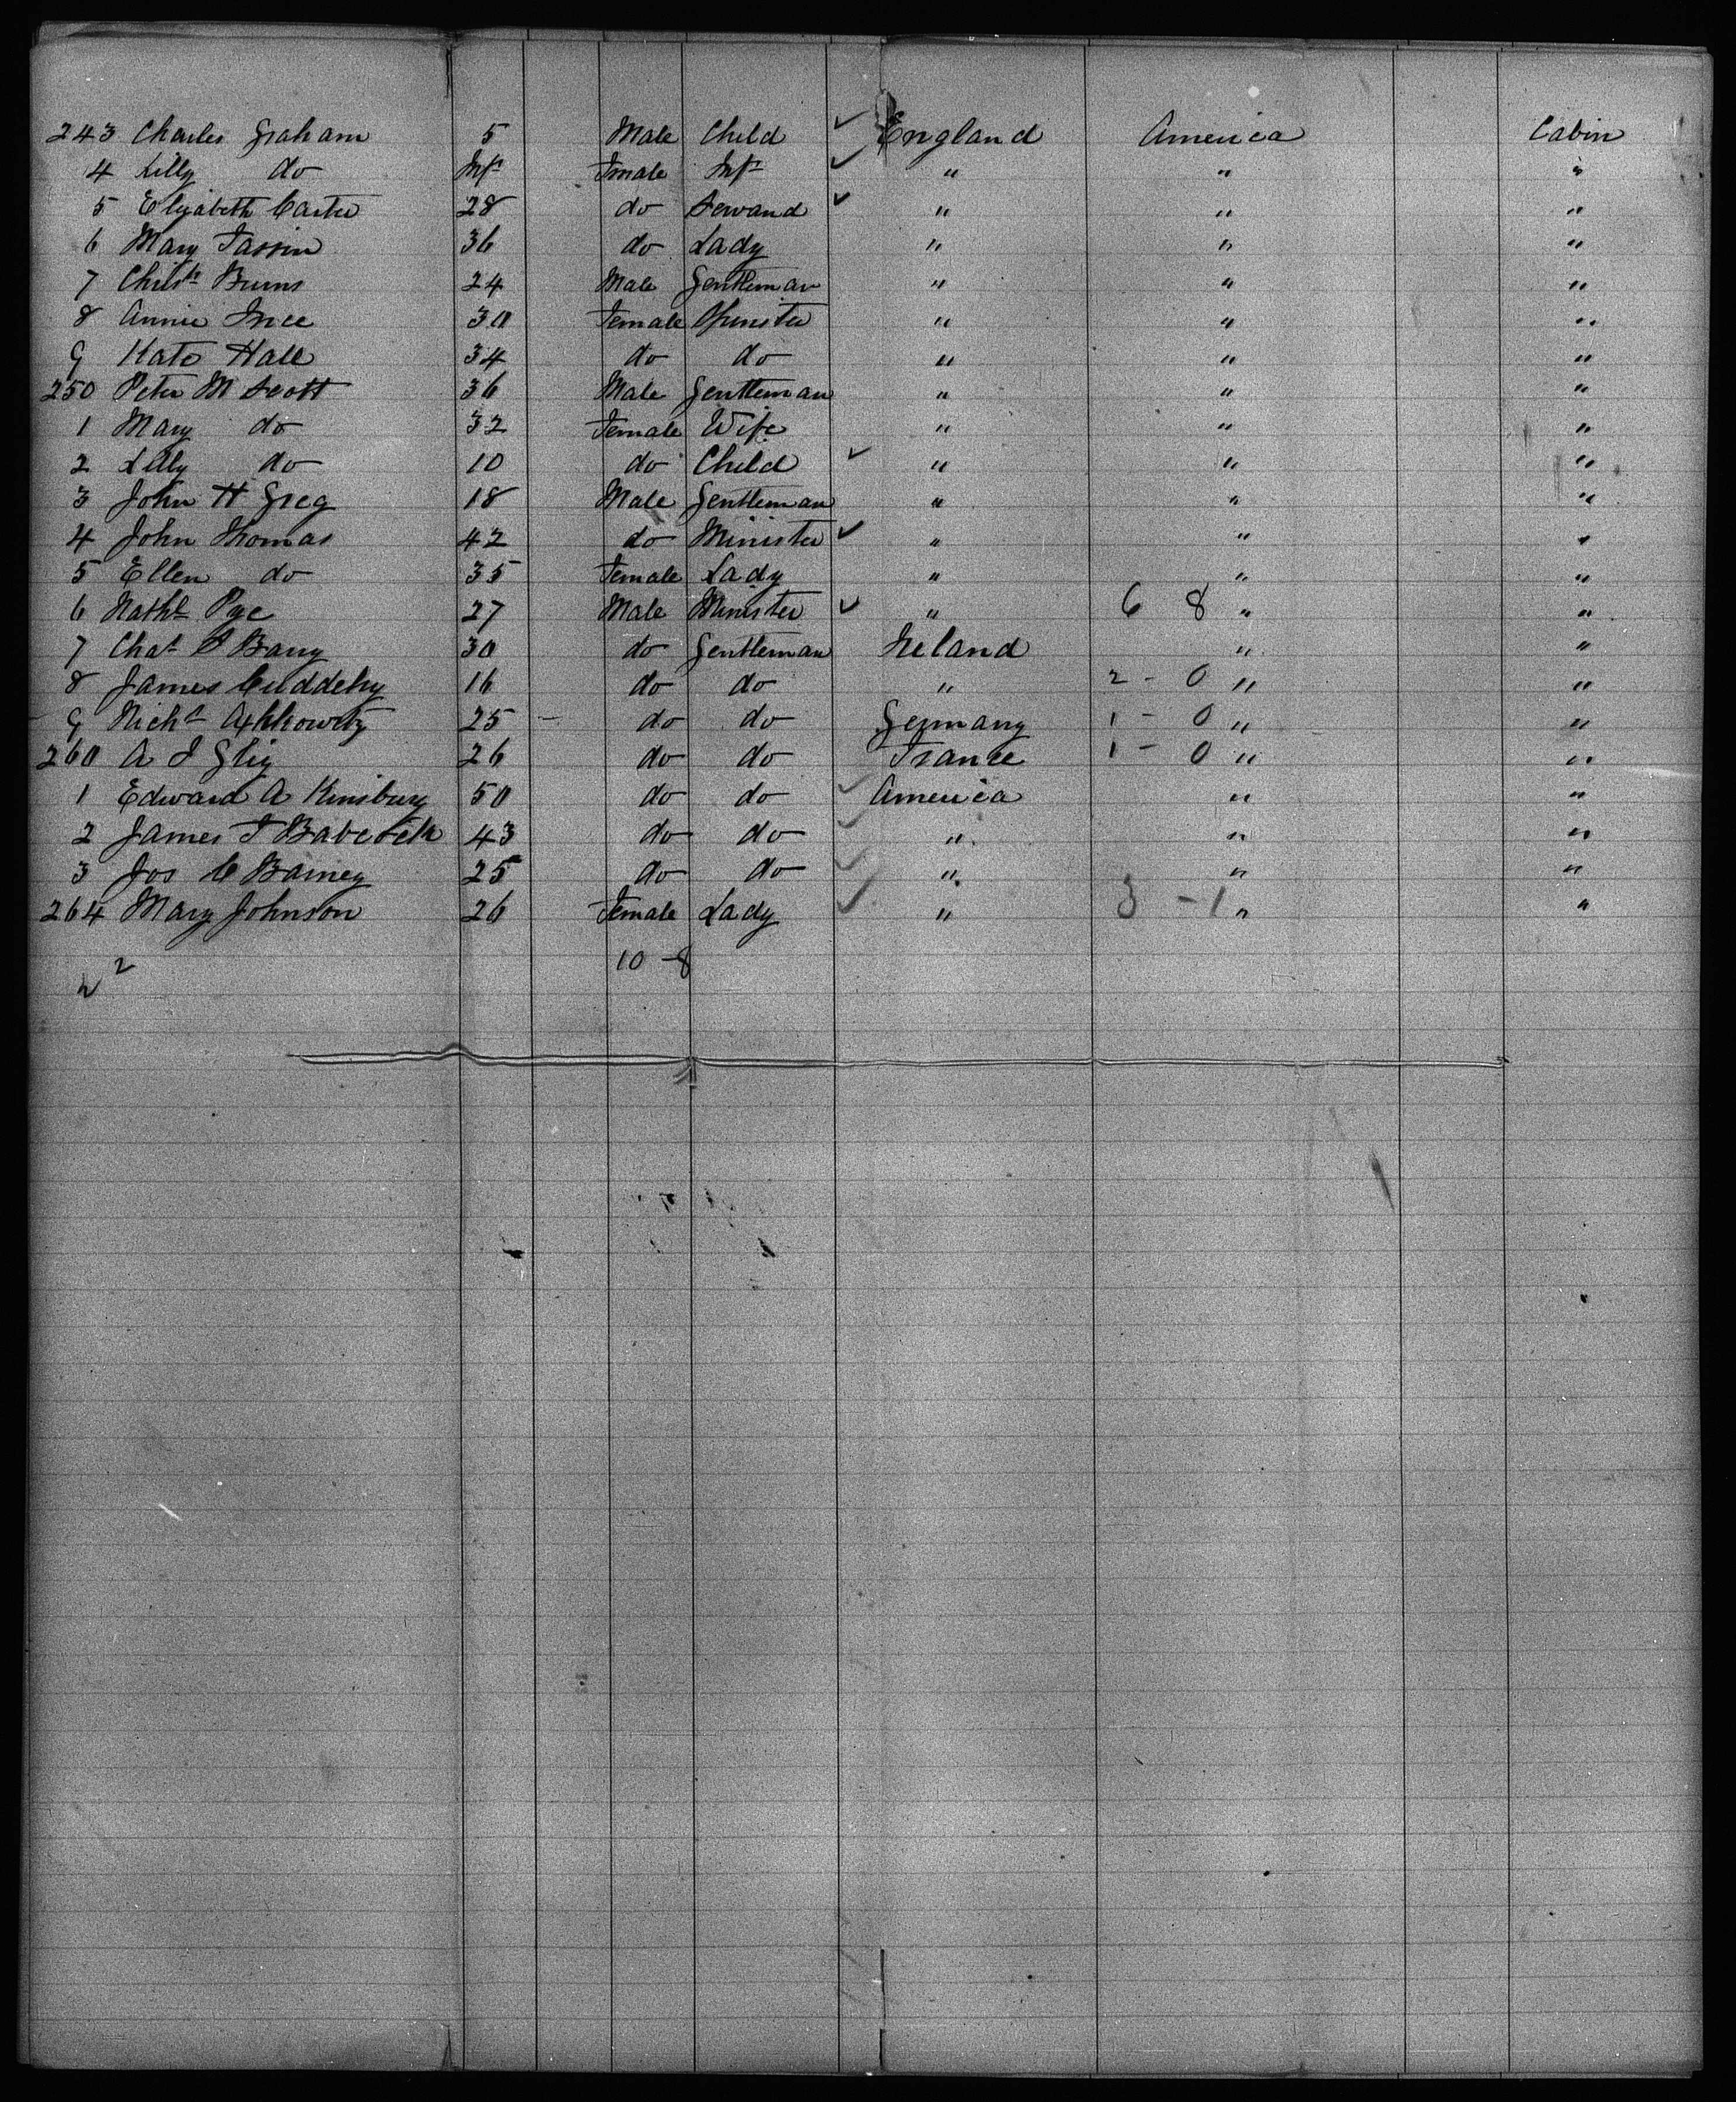 243 Charles Graham 5 Male Child ✓ England America Cabin
4 Lilly do Inft Female Inft ✓ " " "
5 Elizabeth Carter 28 do Servand ✓ " " "
6 Mary Tassin 36 do Lady " " "
7 Christr Burns 24 Male Gentleman " " "
8 Annie Ince 30 Female Spinster " " "
9 Kate Hall 34 do do " " "
250 Peter M Scott 36 Male Gentleman " " "
1 Mary do 32 Female Wife " " "
2 Lilly do 10 do Child ✓ " " "
3 John H Greg 18 Male Gentleman " " "
4 John Thomas 42 do Minister ✓ " " "
5 Ellen do 35 Female Lady " " "
6 Nathl Pye 27 Male Minister ✓ " 6 8 " "
7 Chas Barry 30 do Gentleman Ireland " "
8 James Cuddehy 16 do do " 2 - 0 " "
9 25 - do do Germany 1 - 0 " "
260 A 26 do do France 1 - 0 " "
1 Edward A Kinsbury 50 do do ✓ America " "
2 James T Babcock 43 do do ✓ " " "
3 Jos C Barney 25 do do ✓ " " "
264 Mary Johnson 26 Female Lady ✓ " 3 - 1 " "
10 - 8